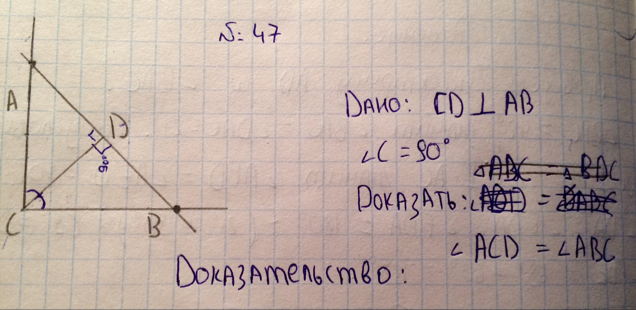 № 47
A
D
90°
C
B
Дано: CD ⊥ AB
∠C = 90°
△ABC = △BDC
Доказать:
∠ACD = ∠ABC
Доказательство: